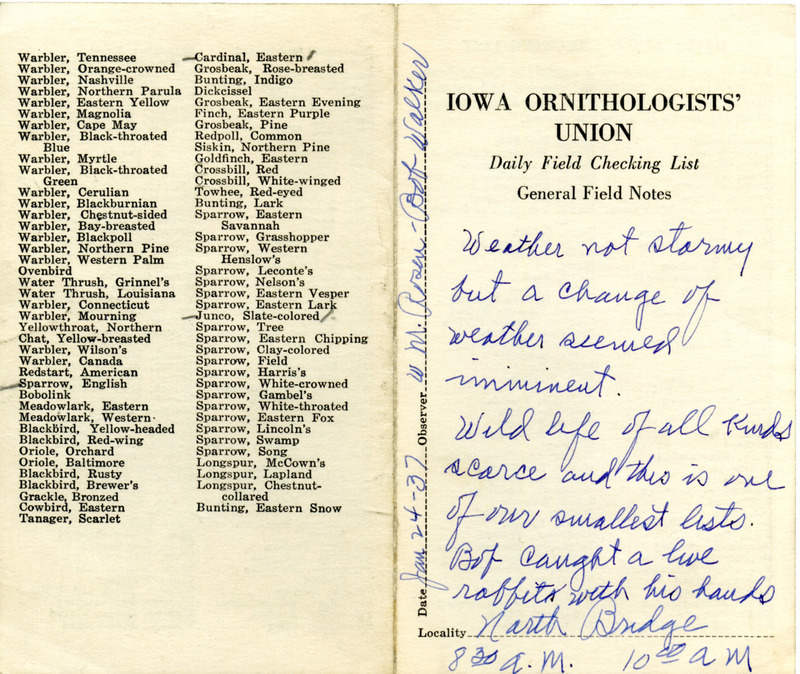 Warbler, Tennessee
Warbler, Orange-crowned
Warbler, Nashville
Warbler, Northern Parula
Warbler, Eastern Yellow
Warbler, Magnolia
Warbler, Cape May
Warbler, Black-throated
Blue
Warbler, Myrtle
Warbler, Black-throated
Green
Warbler, Cerulian
Warbler, Blackburnian
Warbler, Chestnut-sided
Warbler, Bay-breasted
Warbler, Blackpoll
Warbler, Northern Pine
Warbler, Western Palm
Ovenbird
Water Thrush, Grinnel's
Water Thrush, Louisiana
Warbler, Connecticut
Warbler, Mourning
Yellowthroat, Northern
Chat, Yellow-breasted
Warbler, Wilson's
Warbler, Canada
Redstart, American
Sparrow, English
Bobolink
Meadowlark, Eastern
Meadowlark, Western
Blackbird, Yellow-headed
Blackbird, Red-wing
Oriole, Orchard
Oriole, Baltimore
Blackbird, Rusty
Blackbird, Brewer's
Grackle, Bronzed
Cowbird, Eastern
Tanager, Scarlet
Cardinal, Eastern
Grosbeak, Rose-breasted
Bunting, Indigo
Dickcissel
Grosbeak, Eastern Evening
Finch, Eastern Purple
Grosbeak, Pine
Redpoll, Common
Siskin, Northern Pine
Goldfinch, Eastern
Crossbill, Red
Crossbill, White-winged
Towhee, Red-eyed
Bunting, Lark
Sparrow, Eastern
Savannah
Sparrow, Grasshopper
Sparrow, Western
Henslow's
Sparrow, Leconte's
Sparrow, Nelson's
Sparrow, Eastern Vesper
Sparrow, Eastern Lark
Junco, Slate-colored
Sparrow, Tree
Sparrow, Eastern Chipping
Sparrow, Clay-colored
Sparrow, Field
Sparrow, Harris's
Sparrow, White-crowned
Sparrow, Gambel's
Sparrow, White-throated
Sparrow, Eastern Fox
Sparrow, Lincoln's
Sparrow, Swamp
Sparrow, Song
Longspur, McCown's
Longspur, Lapland
Longspur, Chestnut-
collared
Bunting, Eastern Snow
Date Jan 24-37 Observer W M. Rosen - Bob Walker
IOWA ORNITHOLOGISTS'
UNION
Daily Field Checking List
General Field Notes
Weather not stormy
but a change of
weather seemed
imminent.
Wild life of all kinds
scarce and this is one
of our smallest lists.
Bob caught a live
rabbit with his hands
Locality North Bridge
8 30 A.M. 10 00 A M